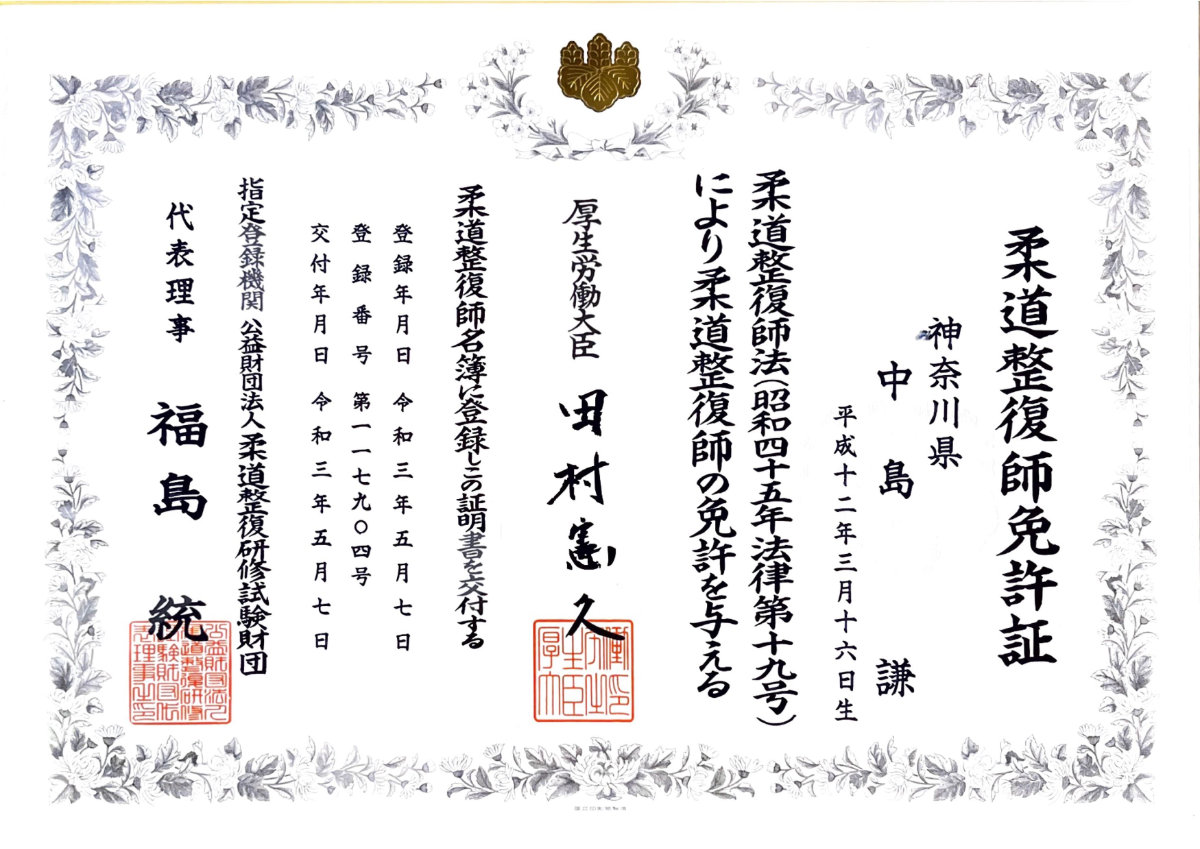 柔道整復師免許証
神奈川県
中島 謙
平成十二年三月十六日生
柔道整復師法(昭和四十五年法律第十九号)
により柔道整復師の免許を与える
厚生労働大臣 田村憲久
柔道整復師名簿に登録しこの証明書を交付する
登録年月日 令和三年五月七日
登録番号 第一一七九〇四号
交付年月日 令和三年五月七日
指定登録機関 公益財団法人柔道整復研修試験財団
代表理事 福島 統